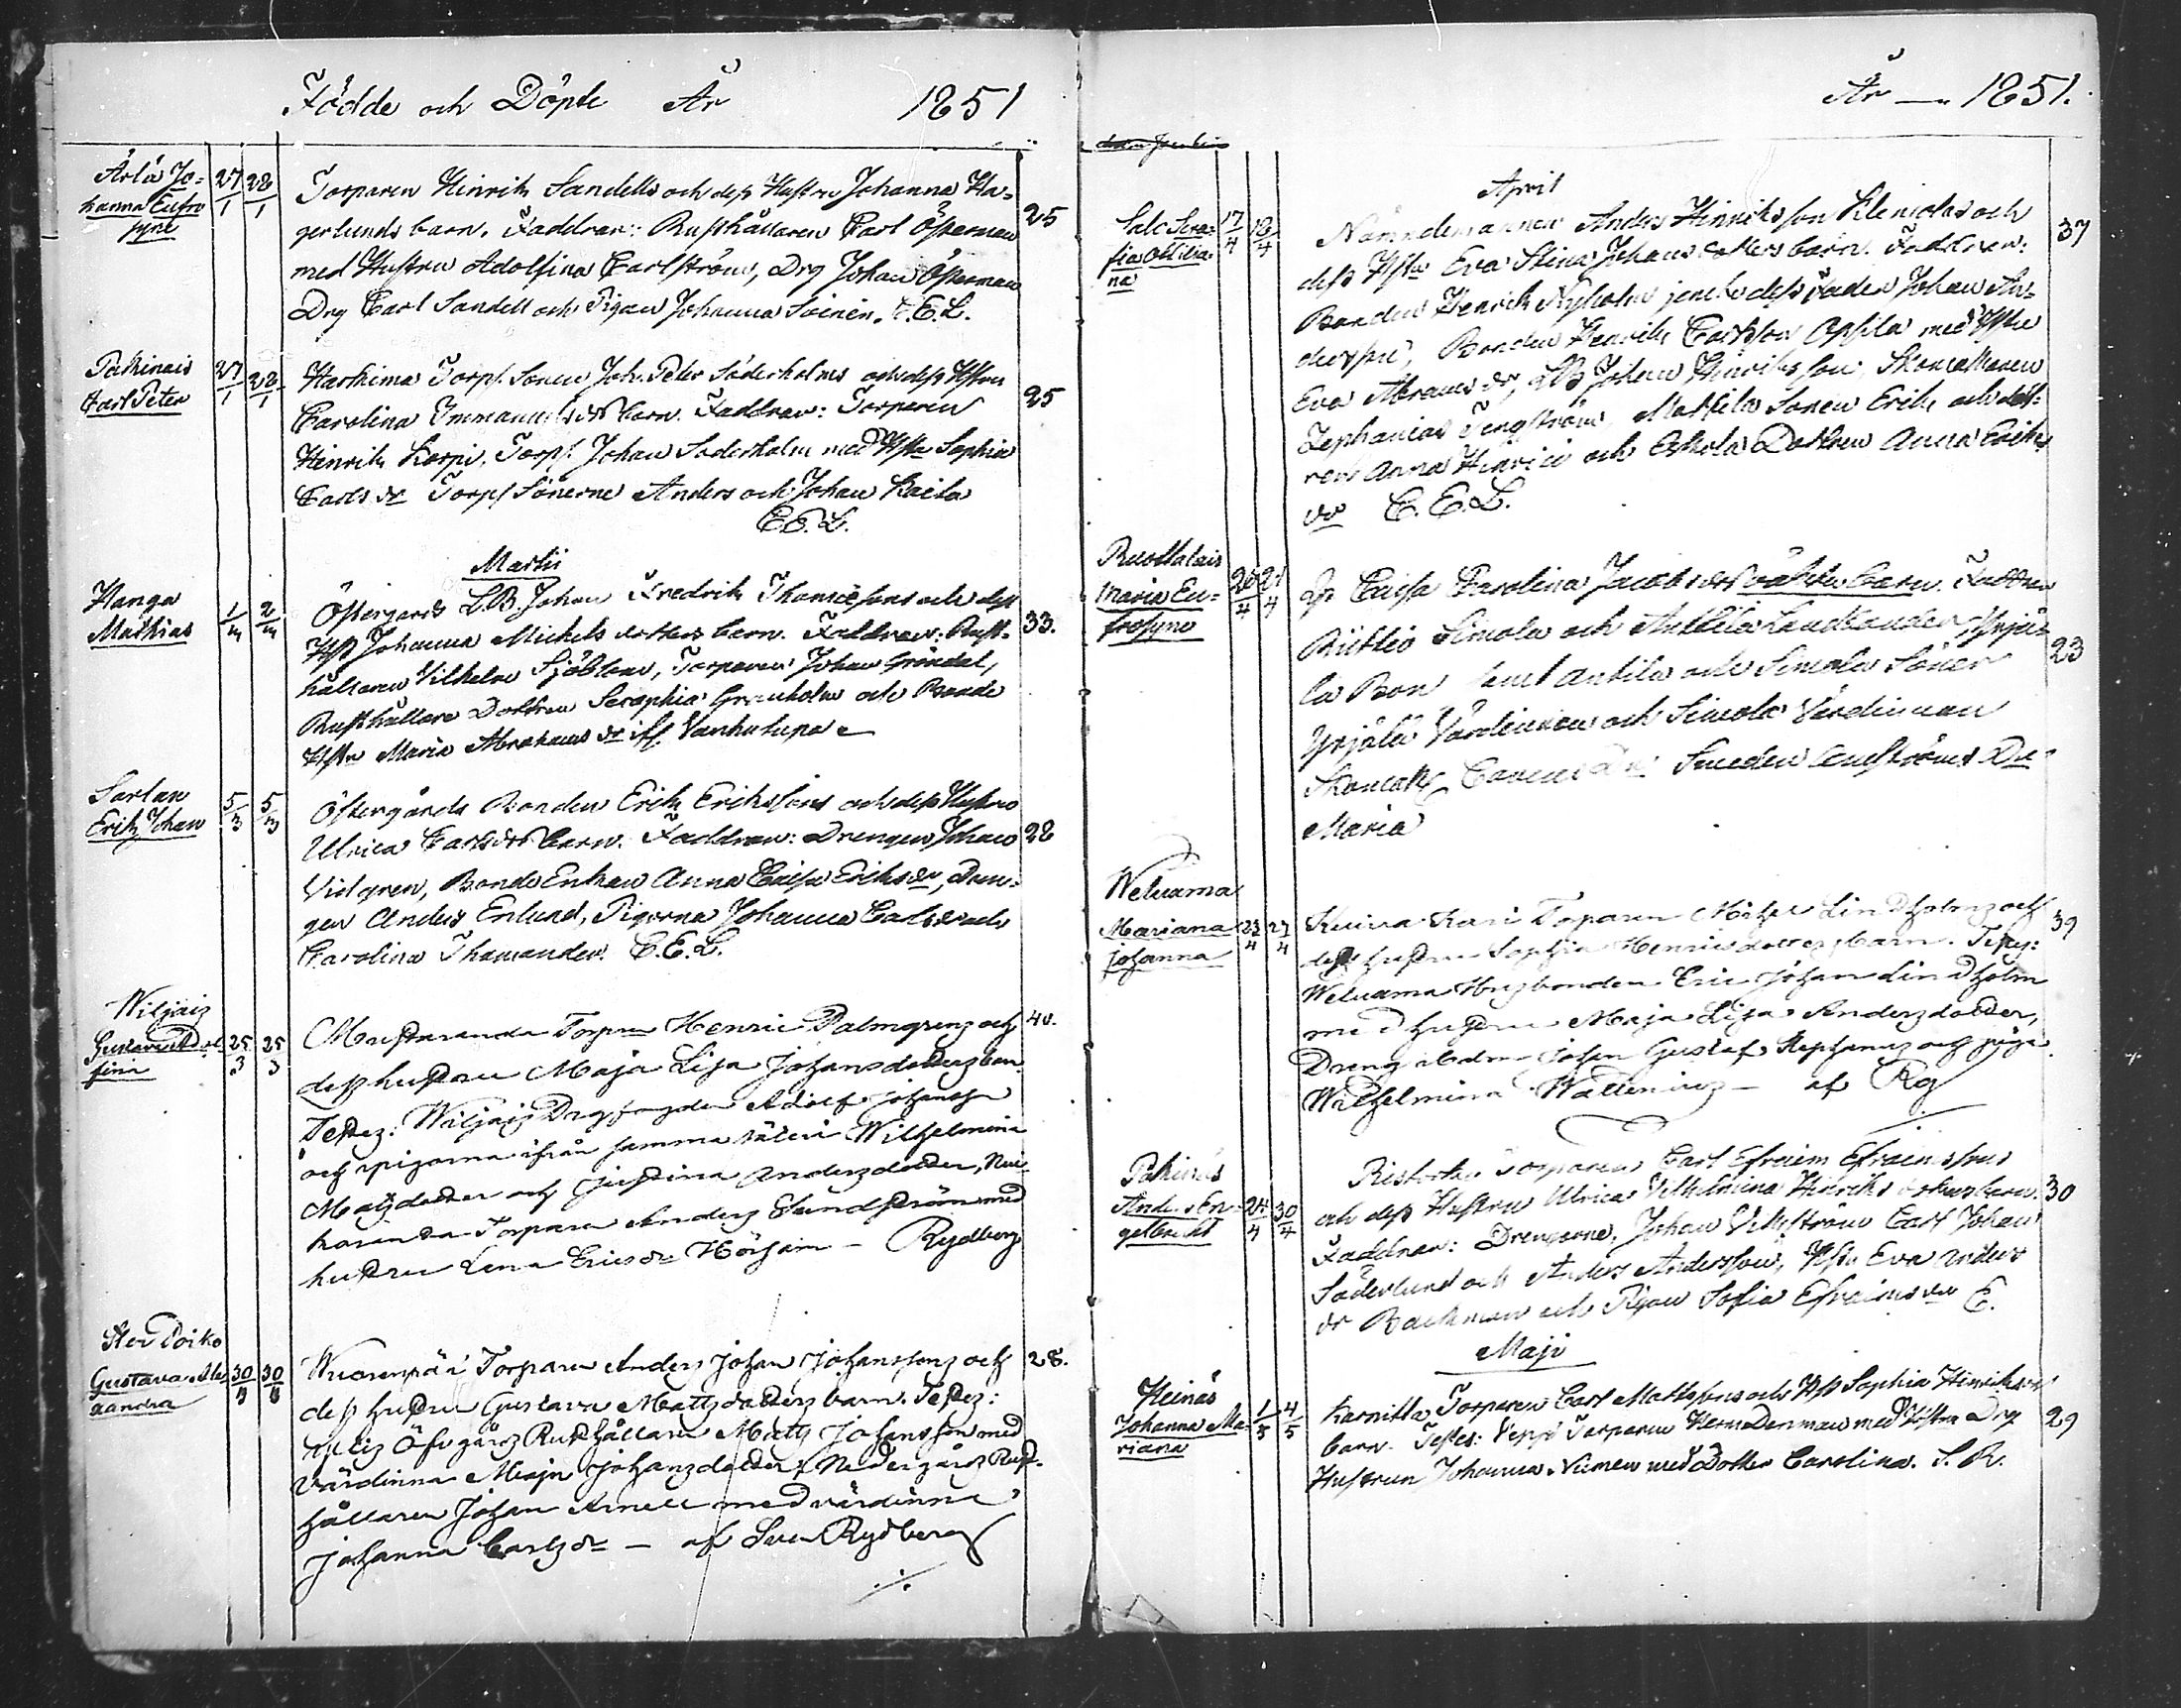 Födde och Döpte År 1851
Ärlä Jo-
hanna Eufro
syne
27/1 28/1
Torparen Hinrik Sandells och dess Hustru Johanna Ha-
gerlunds barn. Faddrar: Rusthållaren Carl Österman
med Hustru Adolfina Carlström, Drg Johan Österman
Drg Carl Sandell och Pigan Johanna Soinen. C.E.L.
25
Pakinais
Carl Peter
27/1 28/1
Harkima Torp. Sonen Joh. Peter Söderholms och dess Hstru
Carolina Immanuels dr barn. Faddrar: Torparen
Hinrik Korpi, Torp. Johan Söderholm med Hstr Sophia
Carls dr Torp Sönerne Anders och Johan Kaila
C.E.L.
25
Martii
Hanga
Mathias
1/3 2/3
Östergårds L.B. Johan Fredrik Thomæsons och dess
Hst Johanna Mickels dotters barn. Faddrar: Rust-
hållaren Vilhelm Sjöblom, Torparen Johan Gröndal,
Rusthållare Dottren Seraphia Granholm och Bonde
Hstr Maria Abrahams dr iff. Vanhatupa
33.
Sorlax
Erik Johan
5/3 5/3
Östergårds Bonden Erik Erikssons och dess Hustru
Ulrica Carls dr barn. Faddrar: Drengen Johan
Vidgren, Bonde Enkan Anna Caisa Eriks dr, Dren-
gen Anders Enlund, Pigorna Johanna Carls dr och
Carolina Thamander. C.E.L.
28
Wiljais
Gustava Adol
fina
25/3 25/3
Mustaranda Torpare Henric Palmgrens och
dess hustru Maja Lisa Johansdotters barn
Testes: Wiljais Drgfogden Adolf Johansson
och pigorna ifrån samma säteri Wilhelmina
Matsdotter och Justina Andersdotter,
Torparen Anders Sundström med
hustru Lena Ericsdr Hörsam – Rydberg
40.
Gustava Alex
andra
30/3 30/3
Wuorenpää Torparen Anders Johan Johanssons och
dess hustru Gustava Matts dotters barn. Testes:
Öfvergårds Rusthållaren Matts Johansson med
värdinna Maja Johansdotter, Nedergårds Rust-
hållaren Johan Arnell med värdinna
Johanna Carlsdr – af Sven Rydberg
28.
År – 1851.
April
Salo Sera-
fia Ottilia-
na
17/4 18/4
Nämndemannen Anders Hinriksson Klenicolas och
dess Hstr Eva Stina Johans dotters barn. Faddrar:
Bonden Henrik Nyholm jemte dess Fader Johan An-
dersson, Bonden Henrik Carlsson Opsila med Hstru
Eva Abrams dr, L.B. Johan Hinriksson, Skomakaren
Zephanias Tengström, Mattila Sonen Erik och dot-
ren Anna Henrici och Eskola Dottren Anna Eriks
dr C.E.L.
37
Ruottalais
Maria Eu-
frosyne
20/4 21/4
Caisa Carolina Jacobs dr oäkta barn. Faddrar
Simola och Anttila Landbonden, Yrjä-
la Bon Antila och Simola Söner
Yrjälä Värdinnan och Simola Värdinnan
Smeden Engströms Dr
Maria
23
Weluama
Mariana
Johanna
23/4 27/4
Torparen Michel Lindholms och
dess hustru Sophia Henricsdotters barn. Testes:
Weluama Husbonden Eric Johan Lindholm
med hustru Maja Lisa Andersdotter,
Dreng Johan Gustaf Stephanus och piga
Wilhelmina Wallenius – af Rg
39
Pakinais
Anders En-
gelbrecht
24/4 30/4
Torparen Carl Efraim Efraimssons
och dess Hustru Ulrica Vilhelmina Hinriks dotters barn.
Faddrar: Drengarne, Johan Villström Carl Johan
Söderlund och Anders Andersson, Hstr Eva Anders
dr Backman och Pigan Sofia Efraims dr E.
30
Maji
Heinäs
Johanna Ma-
riana
1/5 4/5
Karnitta Torparen Carl Mattssons och Hst Sophia Hinriks dr
barn. Testes: Torparen Herm Denman med Hstru Drg
Hustrun Johanna Numen med Dotter Carolina. S.R.
29